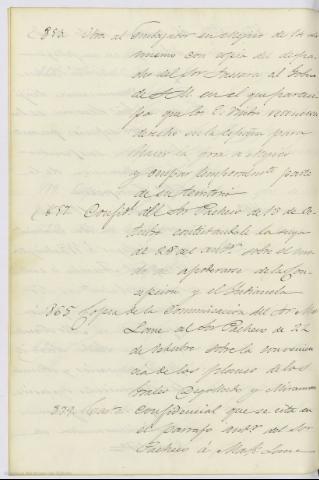 353. Otra al Embajador en Mejico de 14 del
mismo con copia del despa-
cho del Sor Tassara al Gobno
de S.M. en el que partici-
pa que los E. Unidos reconocen
derecho en la España para
hacer la grra a Mejico
y ocupar temporalmte parte
de su territorio
357. Confidl del Sor Pacheco de 15 de Oc-
tubre contestandole la suya
de 28 del antr. sobre el mo-
do de apoderarse de la Con-
cepcion y el Indianola
365. Copia de la Comunicacion del Sr Mc
Lane al Sor Pacheco de 22
de Octubre sobre la convenien-
cia de los planes de los
Grales Degollado y Miramon
379. Carta confidencial que se cita en
el parrafo antr. del Sor
Pacheco á Mak Lane